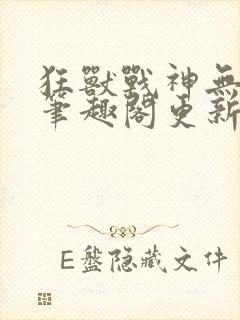 狂獸戰神無
筆趣閣更新
E盘隐藏文件